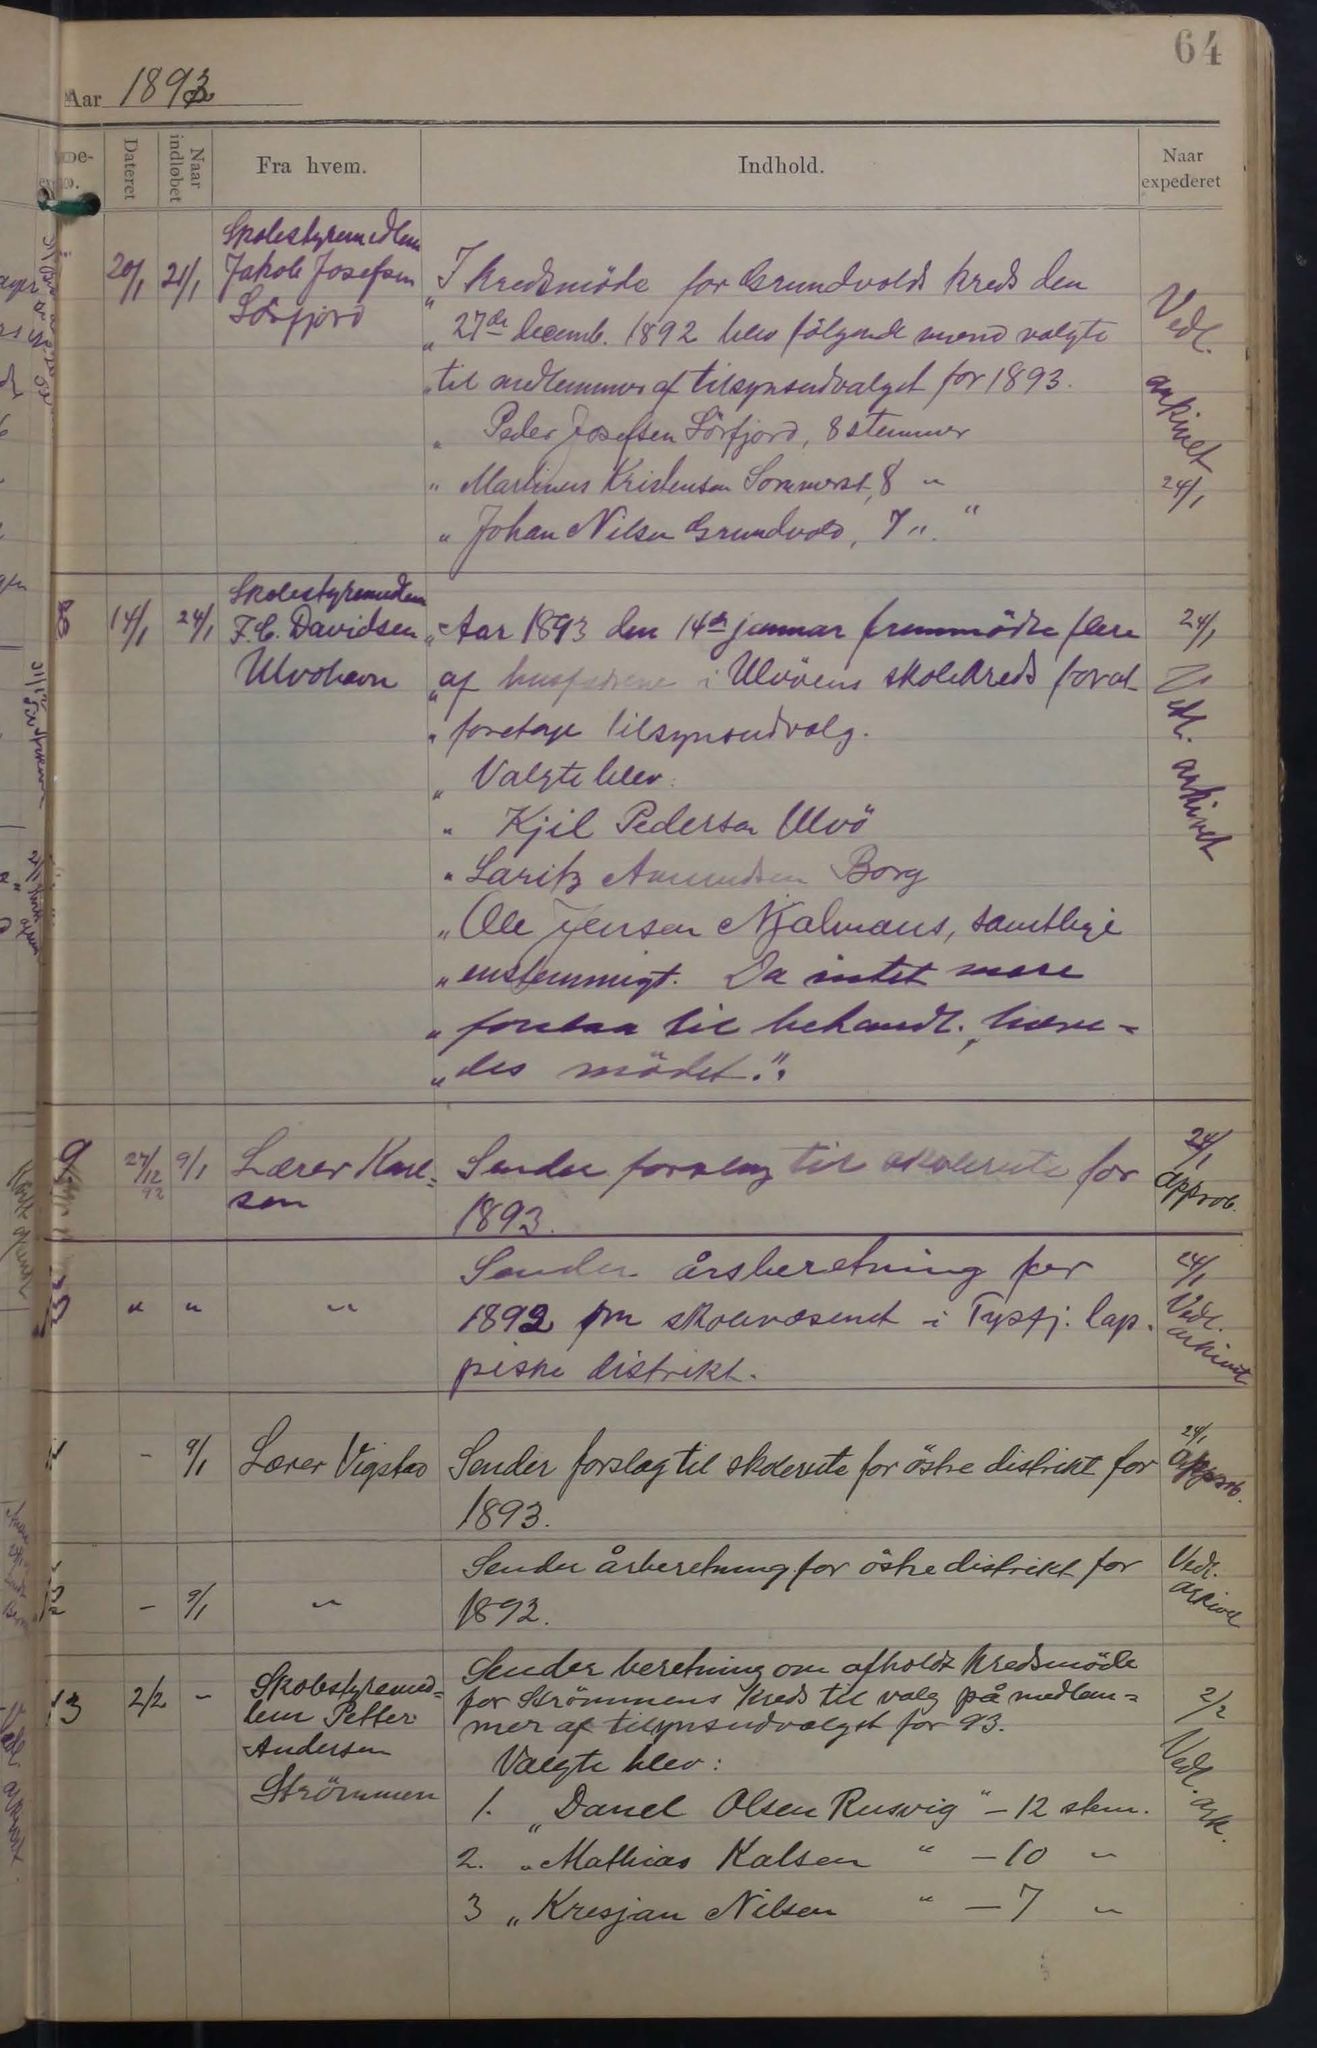 64
Aar 1893
Dateret
Naar indløbet
Fra hvem.
Indhold.
Naar expederet
20/1 21/1
Skolestyremedlem
Jakob Josefsen
Sörfjord
I kredsmöde for Grundvolds kreds den
„ 27de decemb. 1892 blev fölgende mænd valgte
„ til medlemmer af tilsynsudvalget for 1893.
„ Peder Josefsen Sörfjord, 8 stemmer
„ Martinus Kristensen Sommerset, 8 "
„ Johan Nilsen Grundvold, 7 „ "
Vedl.
arkivet
24/1
8 14/1 24/1
Skolestyremedlem
F. C. Davidsen
Ulvohavn
„ Aar 1893 den 14de januar fremmödte flere
„ af husfædrene i Ulvöens skolekreds for at
„ foretage tilsynsudvalg.
„ Valgte blev:
„ Kjil Pedersen Ulvö
„ Laritz Amundsen Borg
„ Ole Jensen Njalmans, samtlige
„ enstemmigt. Da intet mere
„ forelaa til behandl., hæve-
„ des mödet.".
24/1
Vedl.
arkivet
9 27/12 92 9/1
Lærer Karl=
sen
Sender forslag til skolerute for
1893.
24/1
Approb.
" " "
Sender årsberetning for
1892 om skolevæsenet i Tysfj. lap-
piske distrikt.
24/1
Vedl.
arkivet
- 9/1 Lærer Vigstad
Sender forslag til skolerute for östre distrikt for
1893.
24/1
Approb.
- 9/1 "
Sender årberetning for östre distrikt for
1892.
Vedl.
arkivet
13 2/2 -
Skolestyremed=
lem Petter
Andersen
Strömmen
Sender beretning om afholdt kredsmöde
for Strömmens kreds til valg på medlem=
mer af tilsynsudvalget for 93.
Valgte blev:
1. „ Danel Olsen Rusvig " - 12 stem.
2. „ Mathias Kalsen " - 10 "
3 „ Kresjan Nilsen " - 7 "
2/2
Vedl. ark.